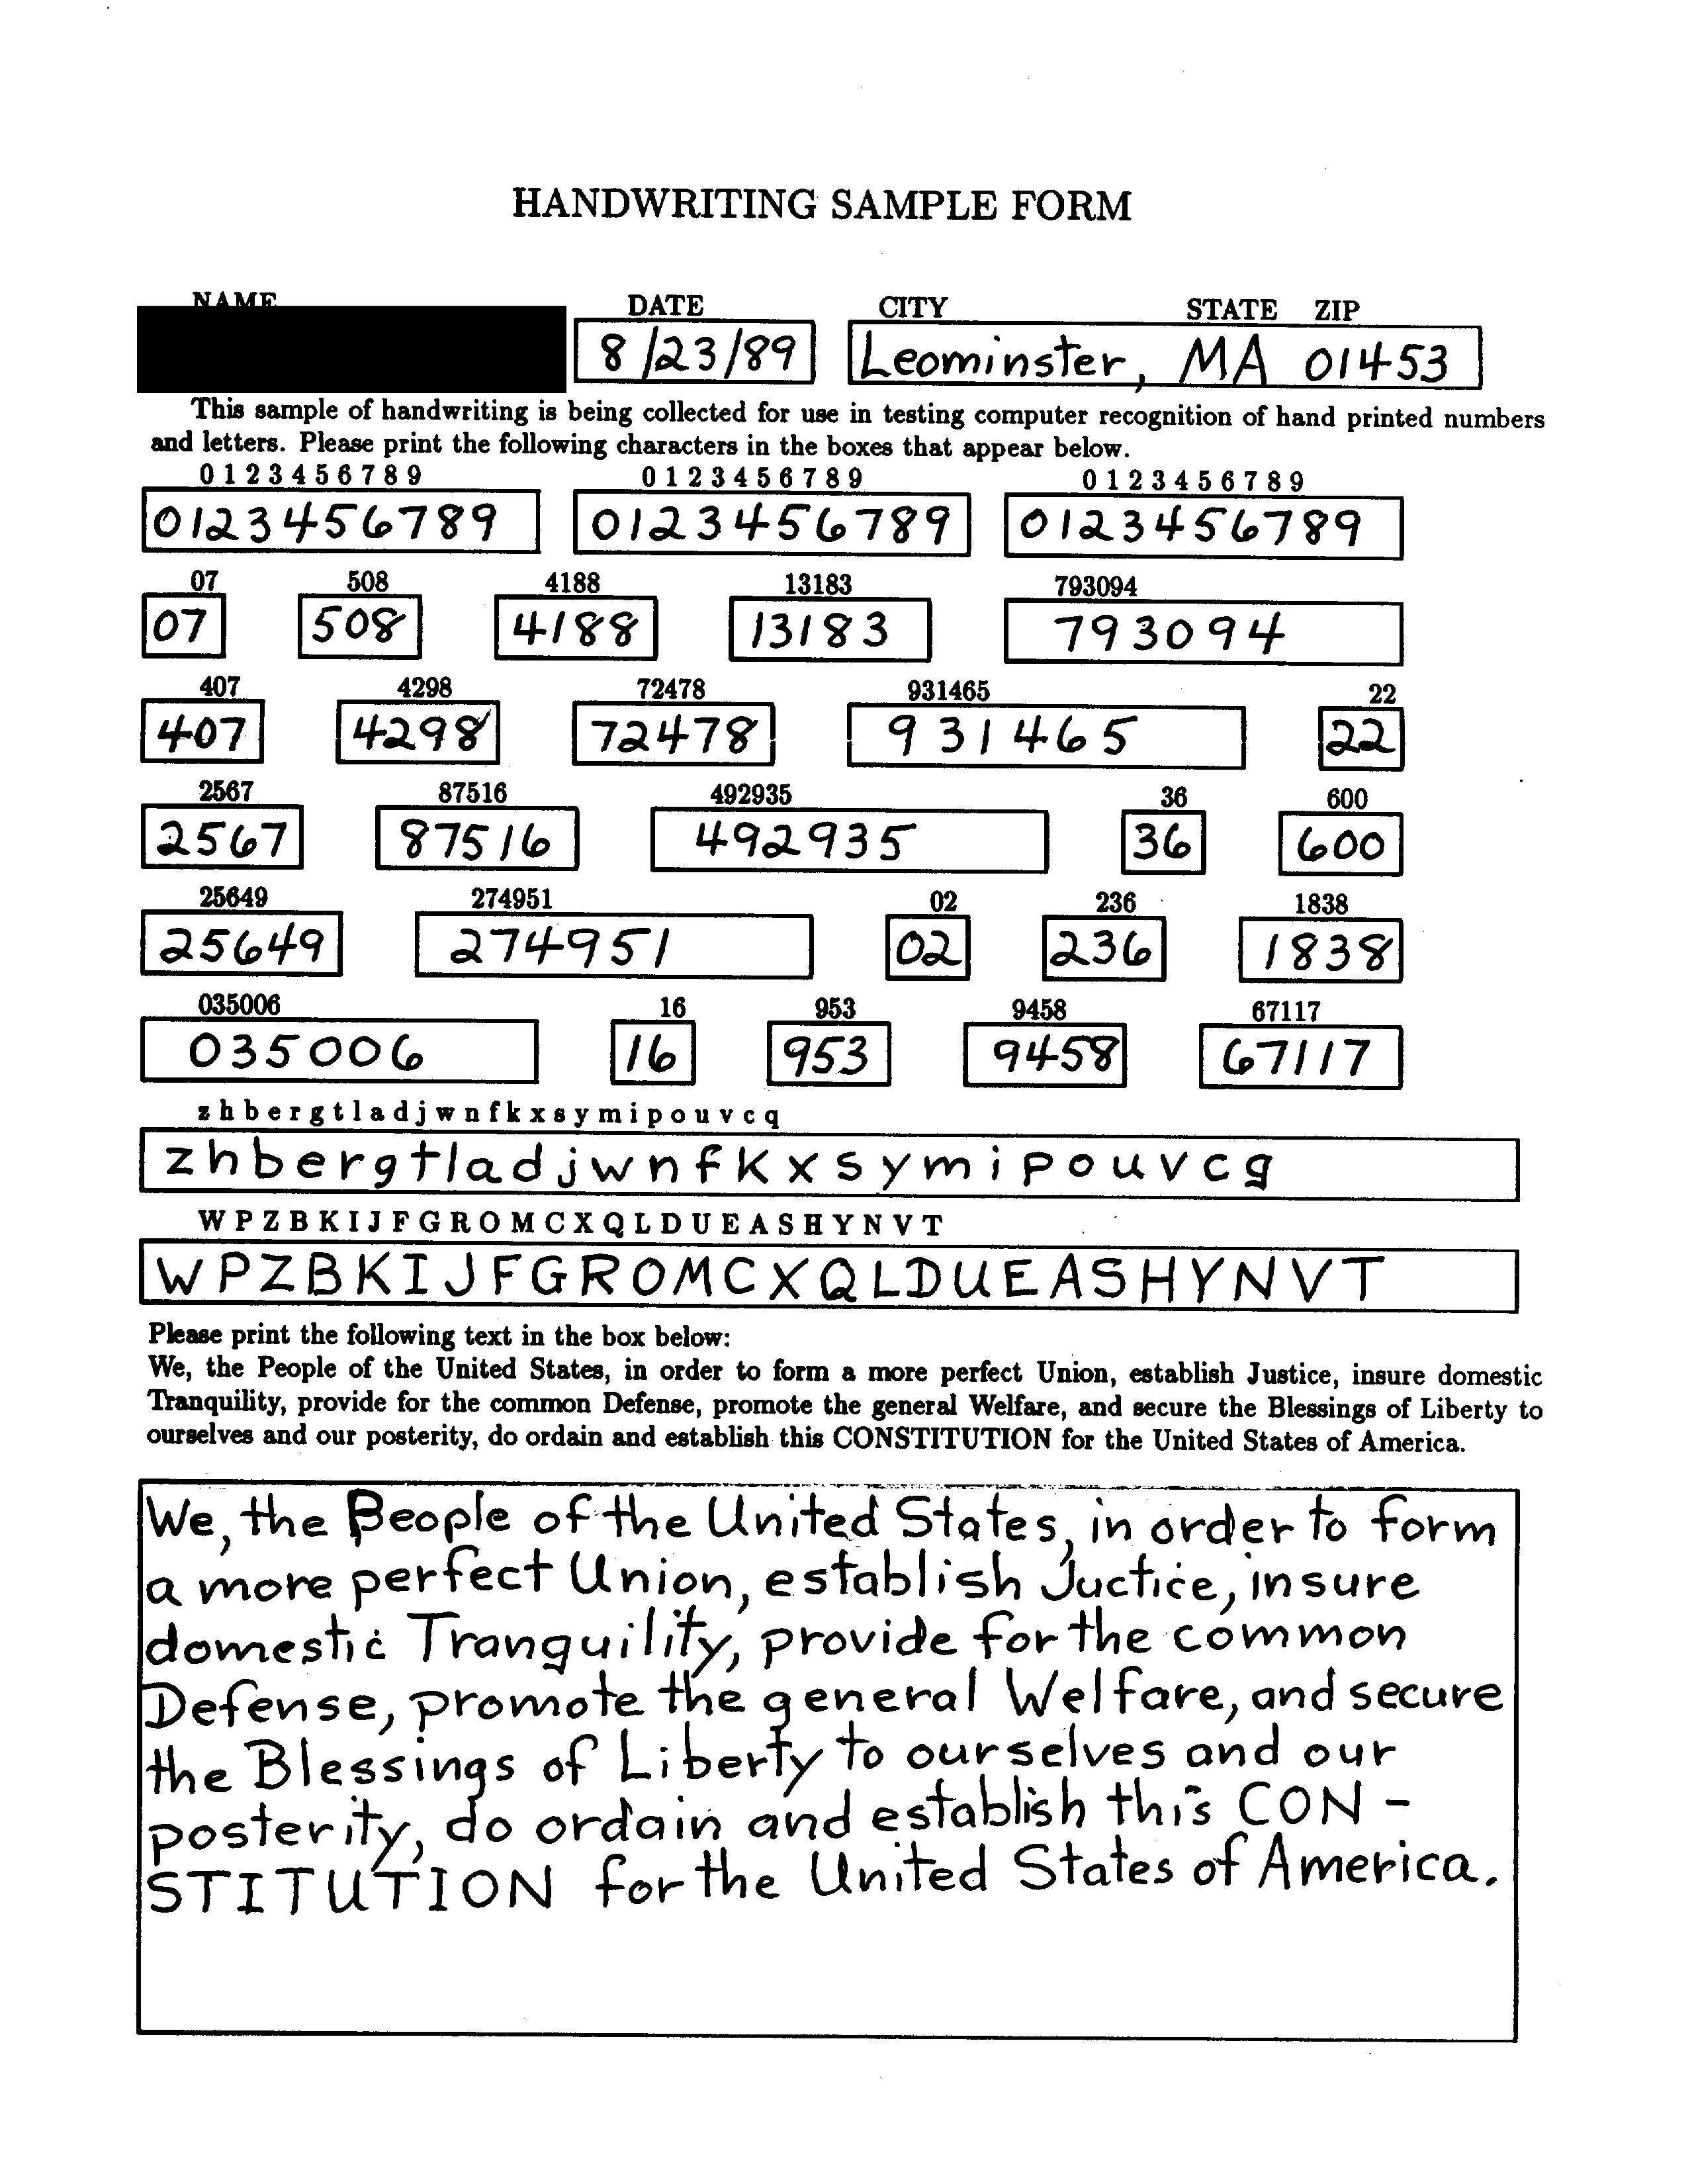 HANDWRITING SAMPLE FORM
NAME DATE CITY STATE ZIP
8/23/89 Leominster, MA 01453
This sample of handwriting is being collected for use in testing computer recognition of hand printed numbers
and letters. Please print the following characters in the boxes that appear below.
0 1 2 3 4 5 6 7 8 9 0 1 2 3 4 5 6 7 8 9 0 1 2 3 4 5 6 7 8 9
0123456789 0123456789 0123456789
07 508 4188 13183 793094
07 508 4188 13183 793094
407 4298 72478 931465 22
407 4298 72478 931465 22
2567 87516 492935 36 600
2567 87516 492935 36 600
25649 274951 02 236 1838
25649 274951 02 236 1838
035006 16 953 9458 67117
035006 16 953 9458 67117
z h b e r g t l a d j w n f k x s y m i p o u v c q
z h b e r g t l a d j w n f k x s y m i p o u v c g
W P Z B K I J F G R O M C X Q L D U E A S H Y N V T
W P Z B K I J F G R O M C X Q L D U E A S H Y N V T
Please print the following text in the box below:
We, the People of the United States, in order to form a more perfect Union, establish Justice, insure domestic
Tranquility, provide for the common Defense, promote the general Welfare, and secure the Blessings of Liberty to
ourselves and our posterity, do ordain and establish this CONSTITUTION for the United States of America.
We, the People of the United States, in order to form
a more perfect Union, establish Juctice, insure
domestic Tranquility, provide for the common
Defense, promote the general Welfare, and secure
the Blessings of Liberty to ourselves and our
posterity, do ordain and establish this CON -
STITUTION for the United States of America.